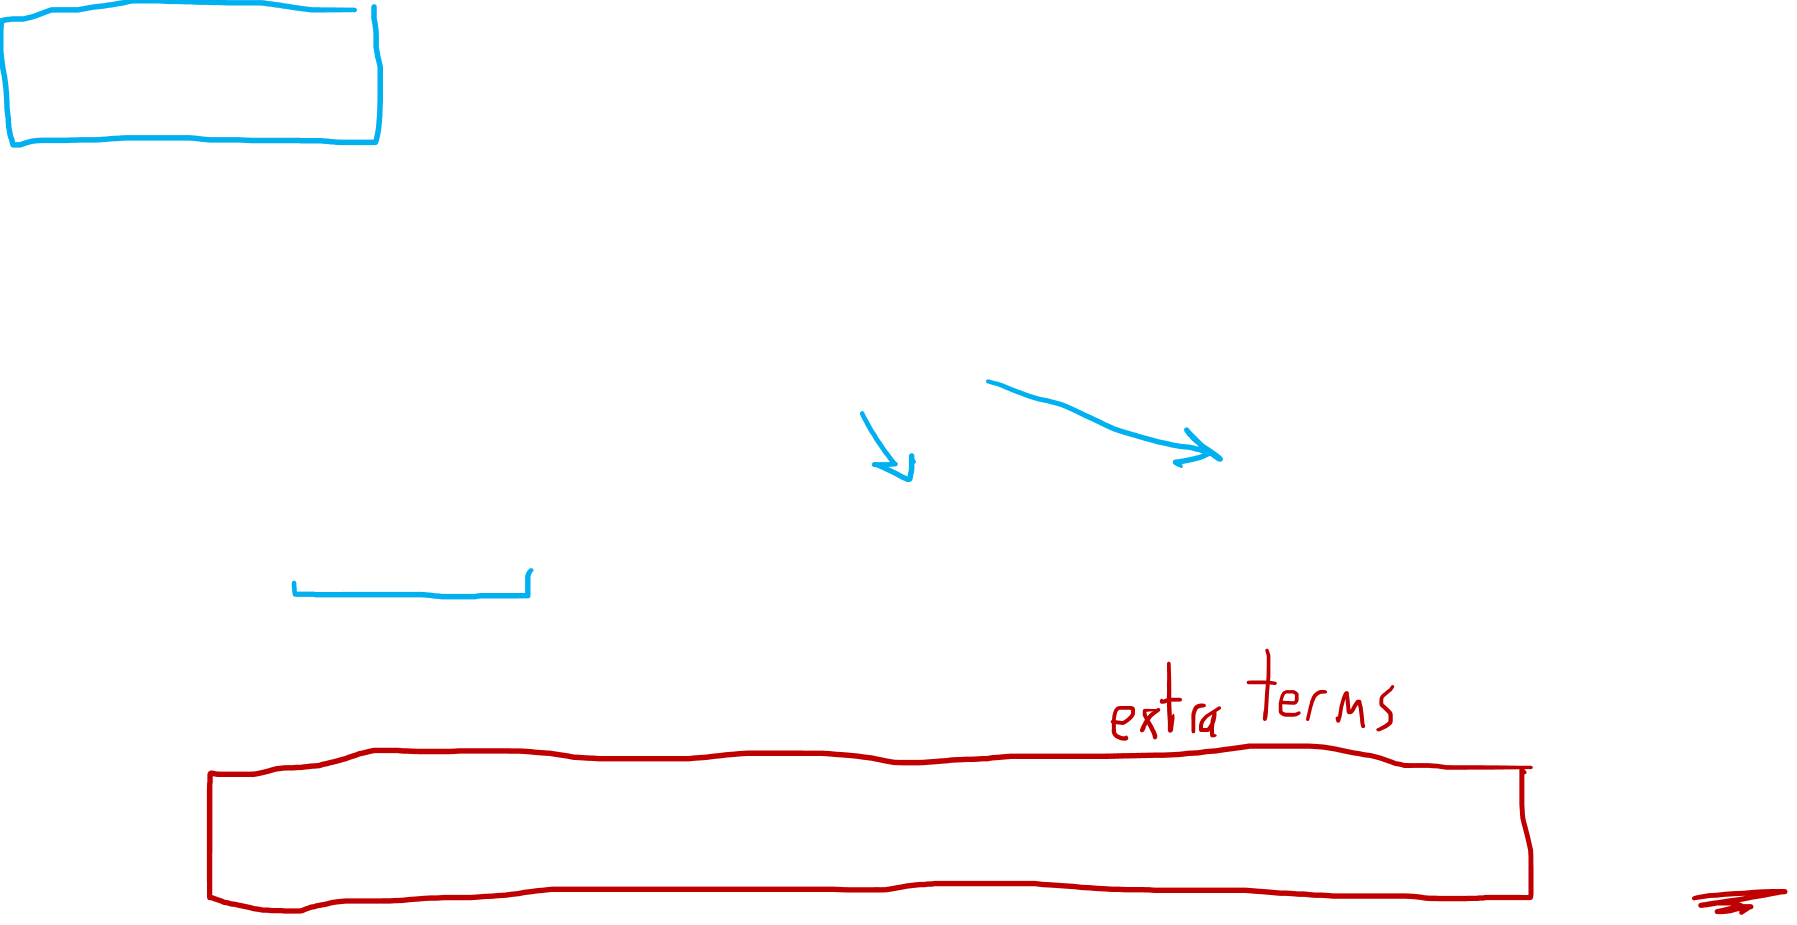 extra terms